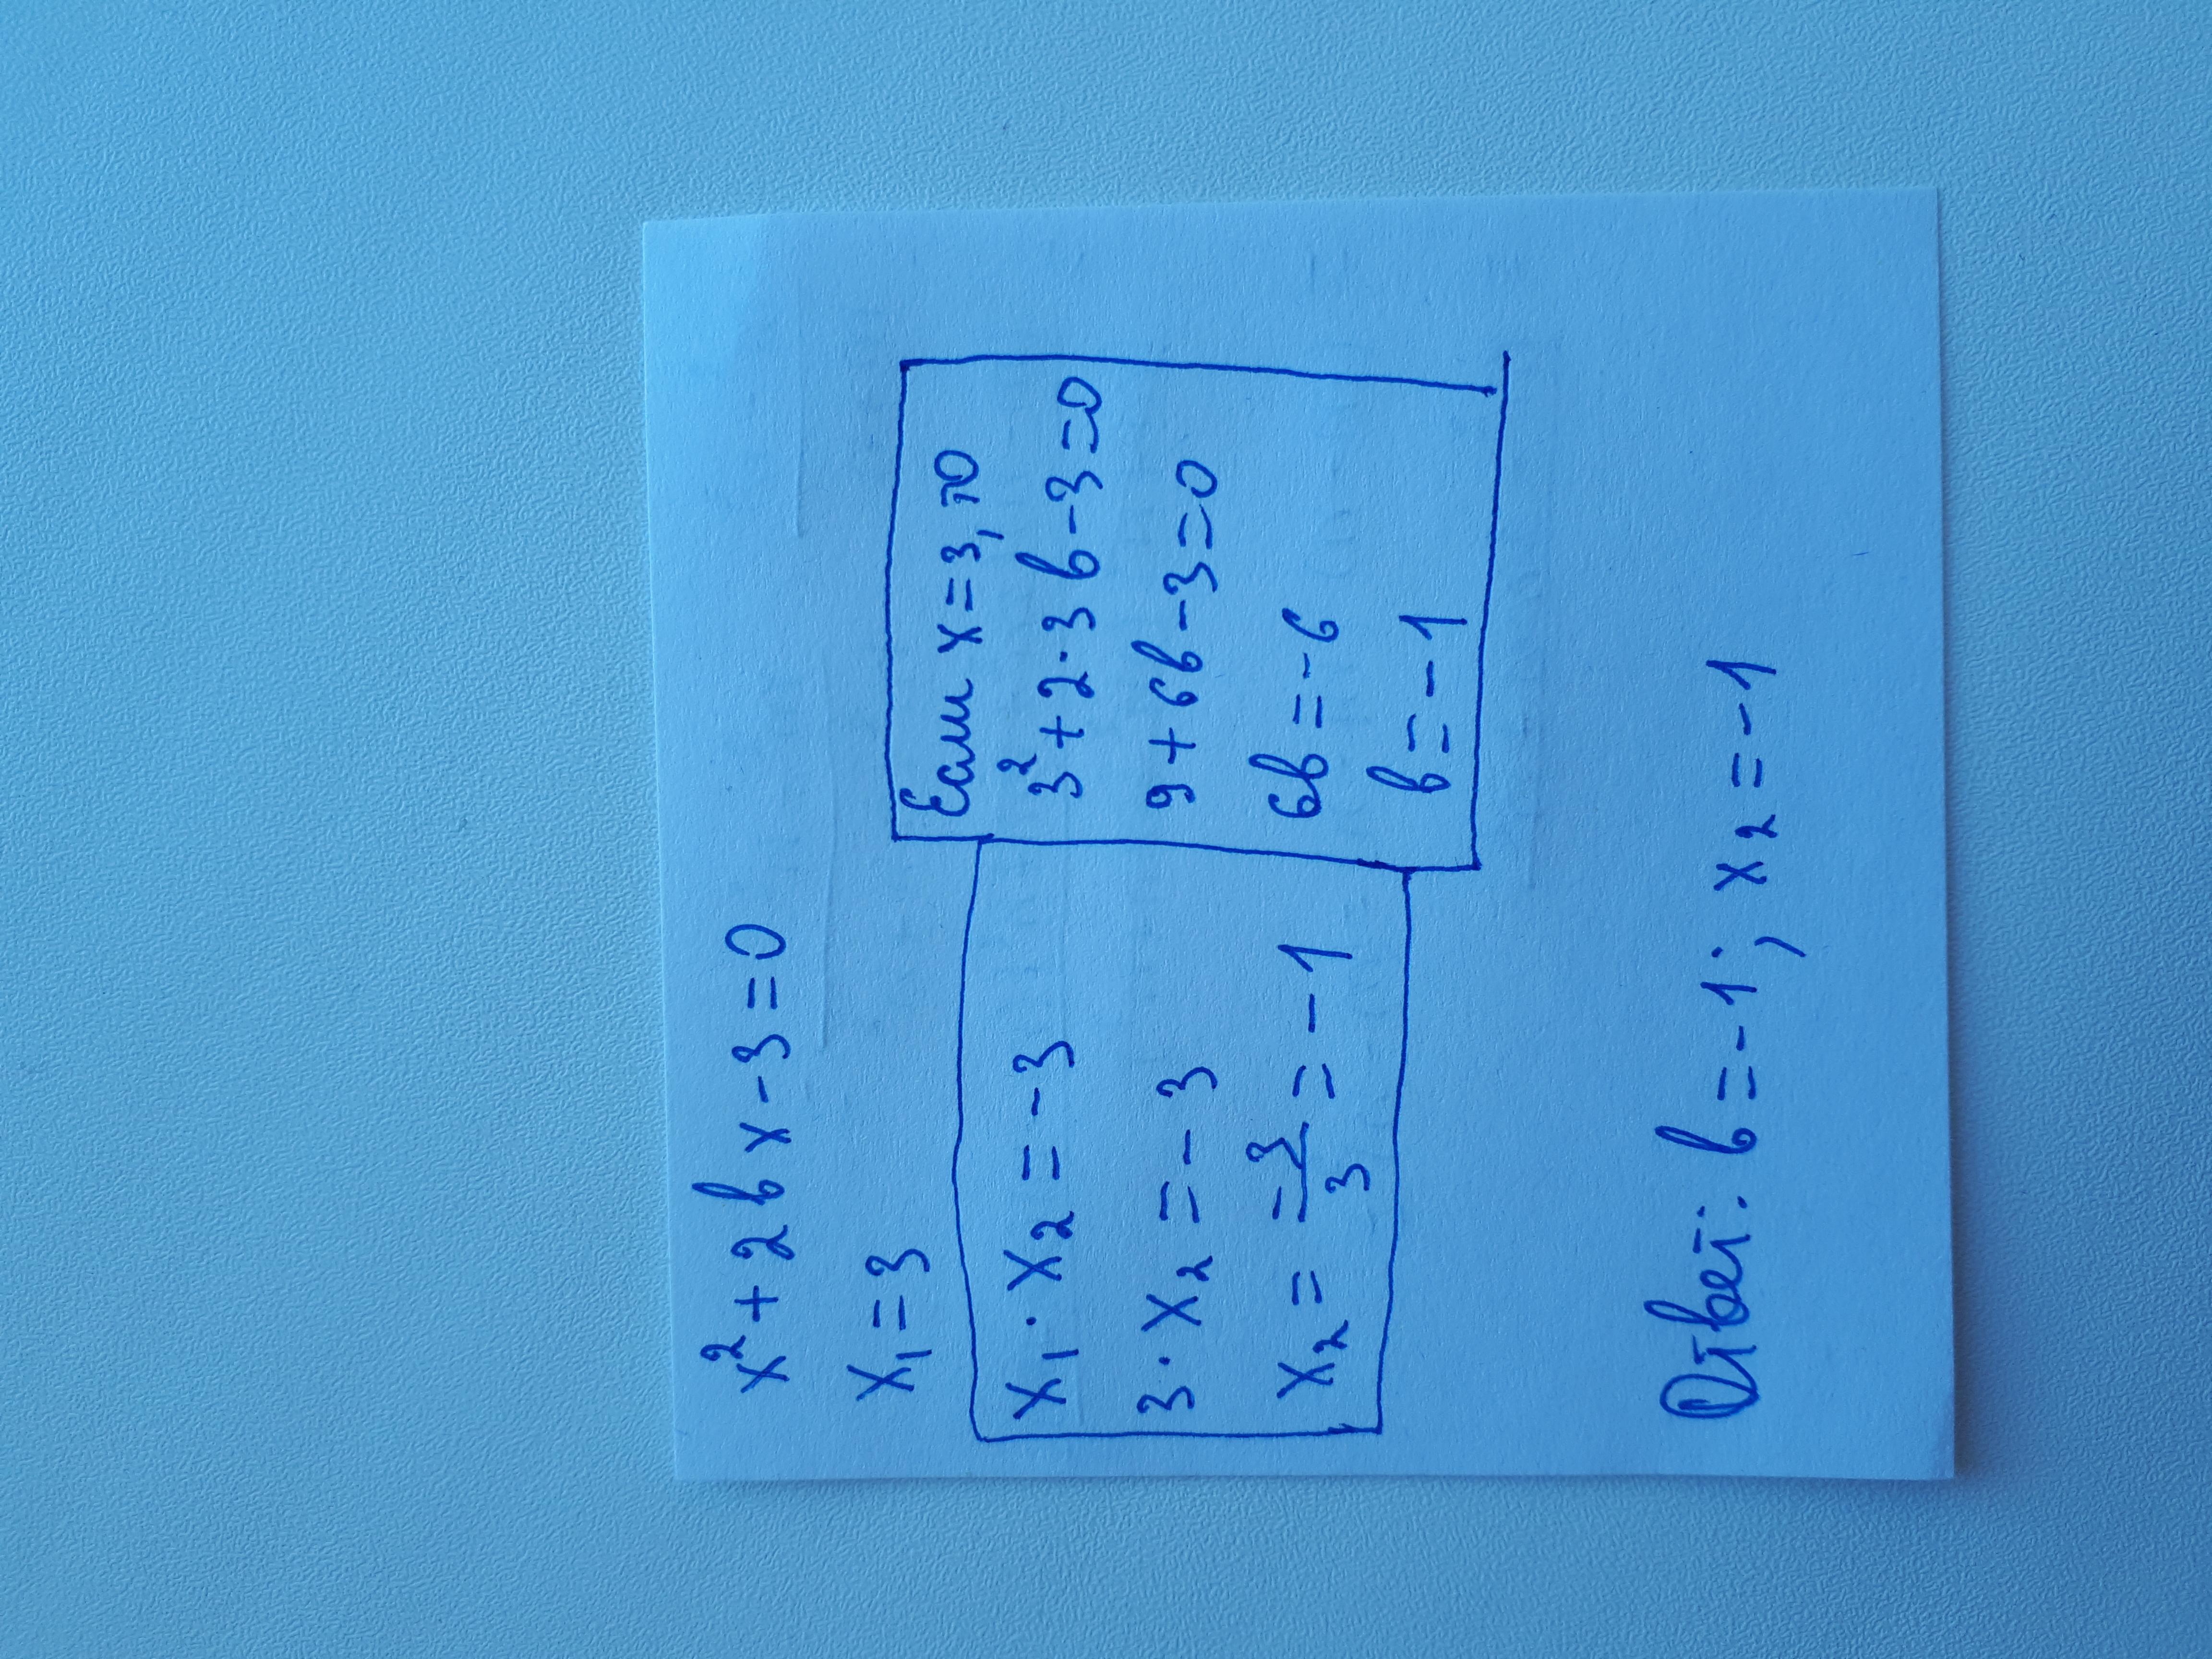 x²+2bx-3=0
x₁=3
x₁·x₂=-3
3·x₂=-3
x₂=-3/3=-1
Если x=3, то
3²+2·3b-3=0
9+6b-3=0
6b=-6
b=-1
Ответ: b=-1; x₂=-1